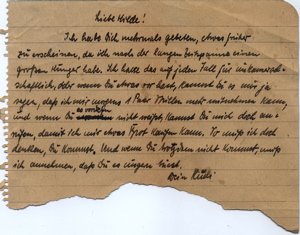 Liebe Hilde!
Ich habe Dich mehrmals gebeten, etwas früher
zu erscheinen, da ich nach der langen
großen Hunger habe. Ich halte das auf jeden Fall für unkamerad-
schaftlich, oder wenn Du etwas vor hast, kannst Du es mir ja
sagen, daß ich mir morgens 2 Paar Stullen mehr mitnehmen kann,
und wenn Du es nicht weißt, kannst Du mich doch an-
rufen, damit ich mir etwas Brot kaufen kann. So muß ich doch
denken, Du kommst. Und wenn Du trotzdem nicht kommst, muß
ich annehmen, daß Du es ungern tust.
Dein Rudi